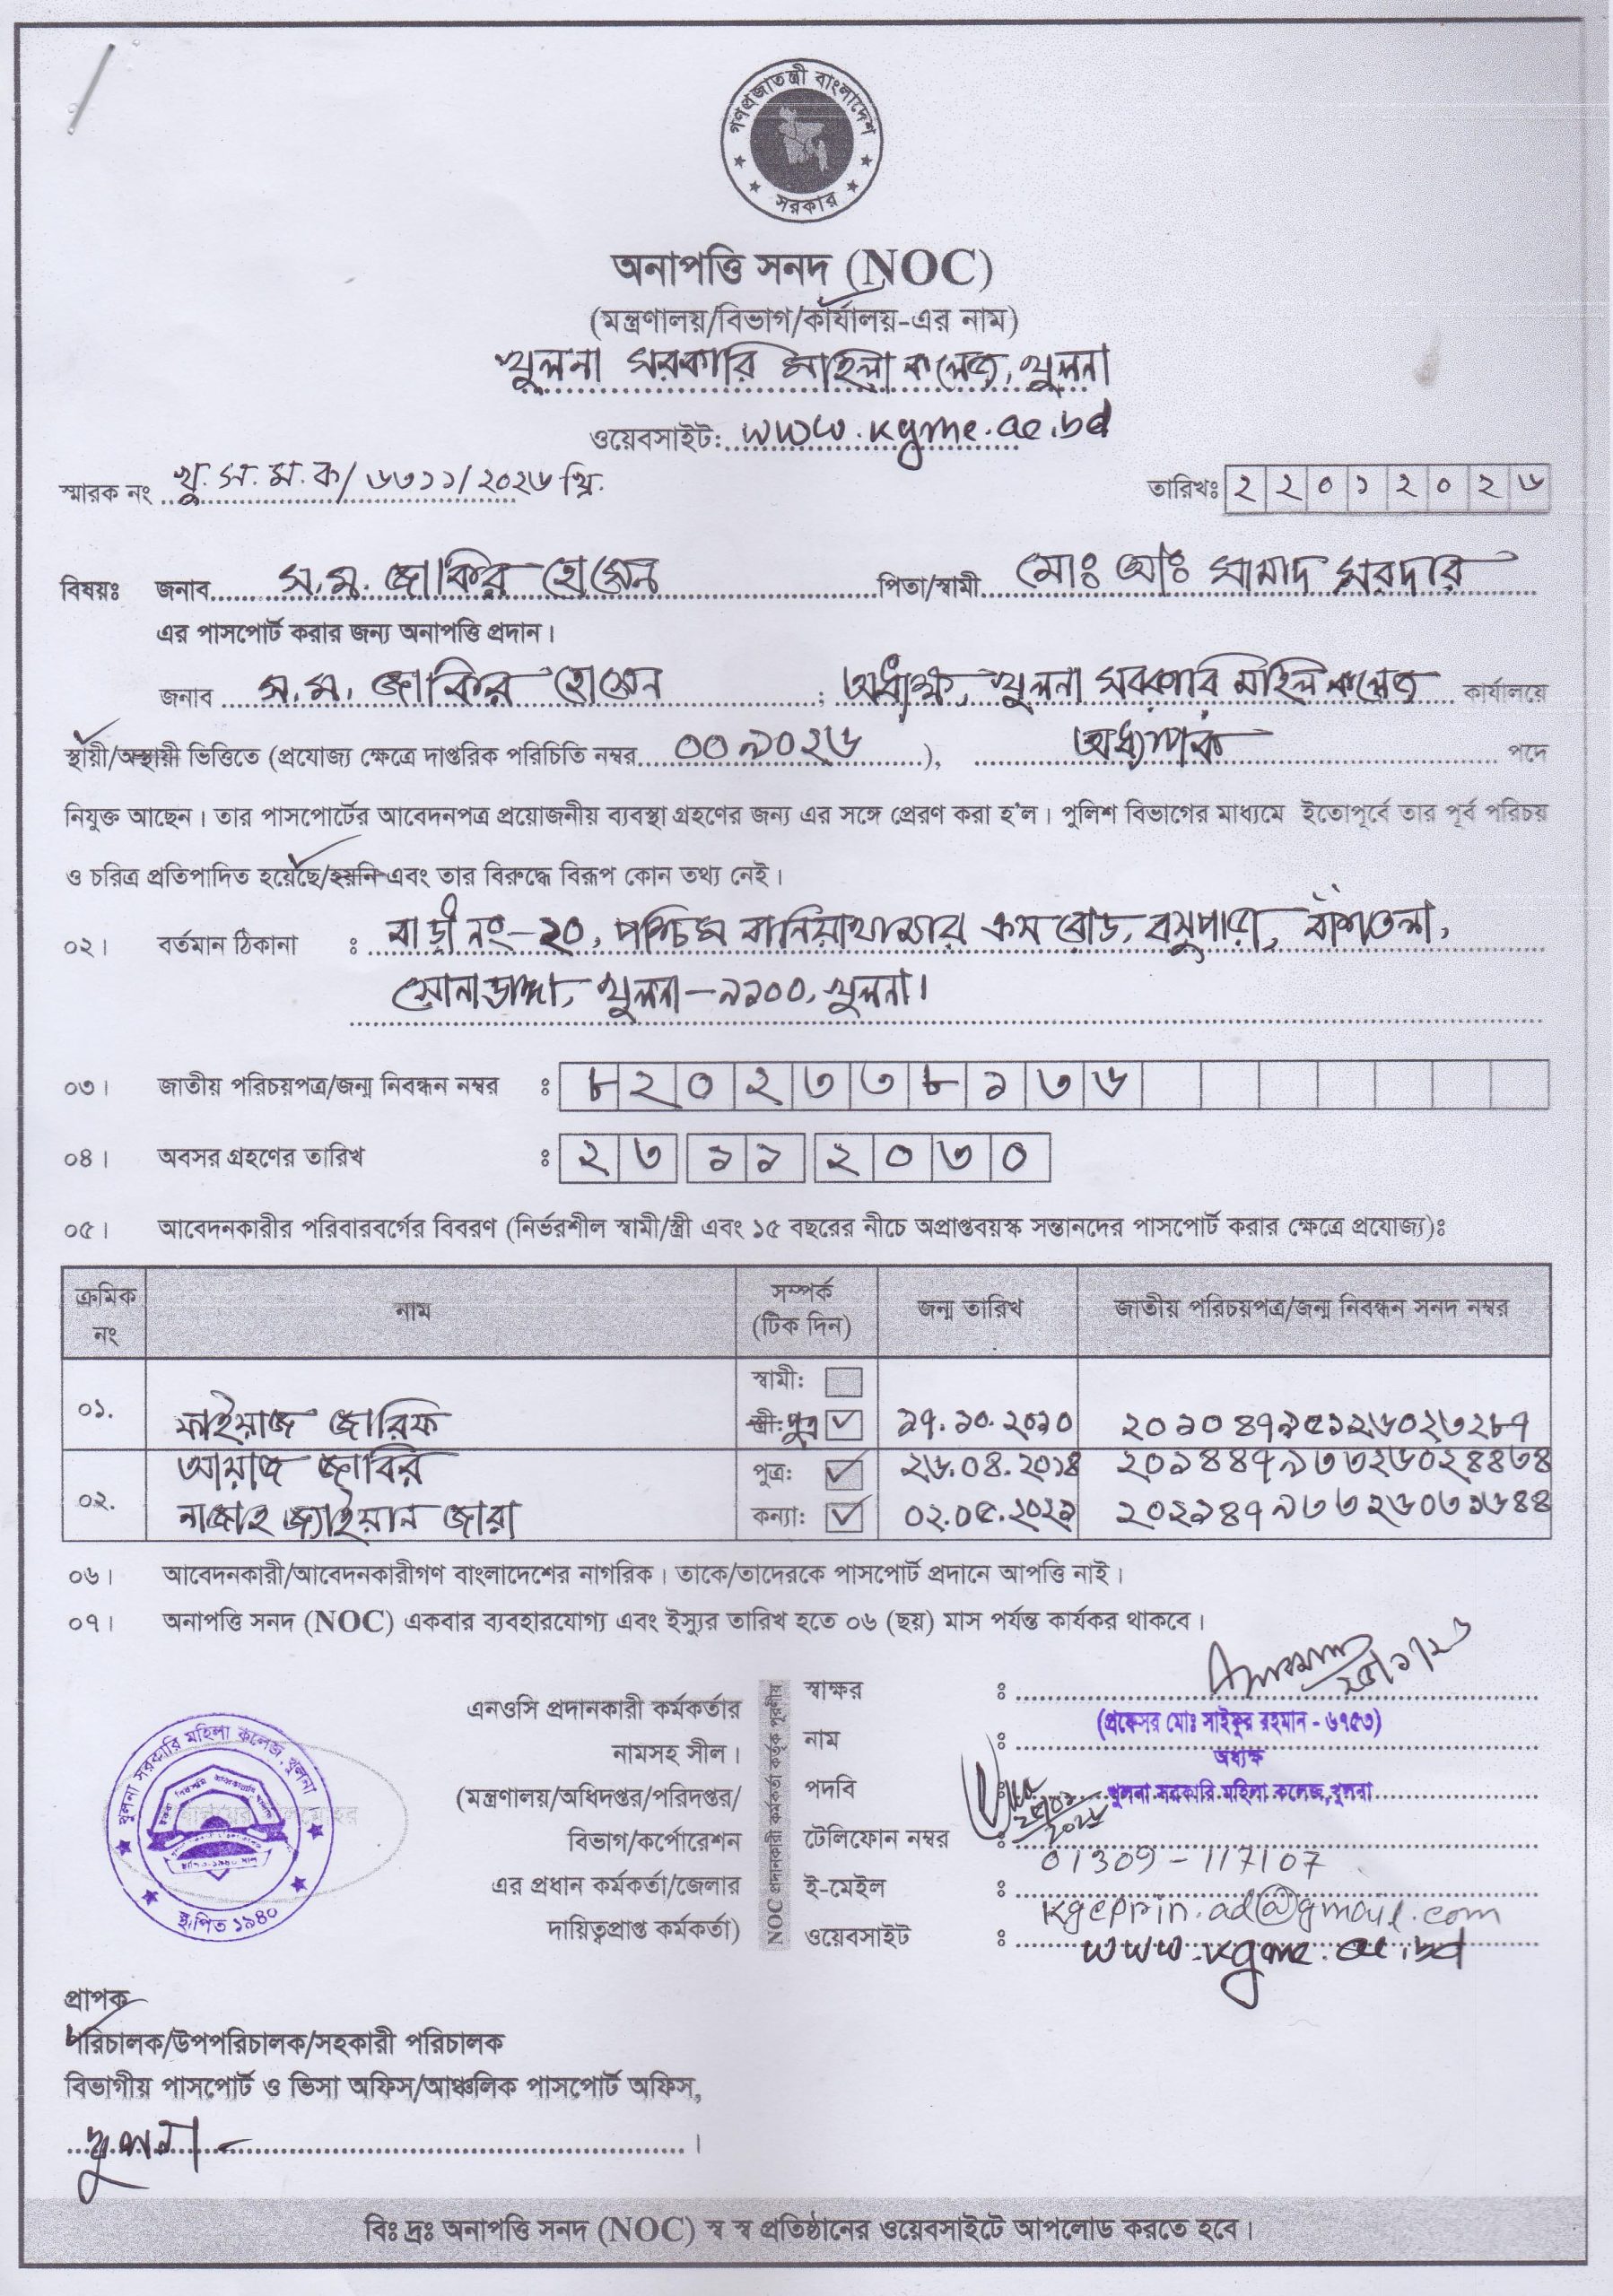 গণপ্রজাতন্ত্রী বাংলাদেশ
সরকার
অনাপত্তি সনদ (NOC)
(মন্ত্রণালয়/বিভাগ/কার্যালয়-এর নাম)
খুলনা সরকারি মহিলা কলেজ, খুলনা
ওয়েবসাইট: www.kgmc.ac.bd
স্মারক নং খু.স.ম.ক/৬৩১১/২০২৬ খ্রি. তারিখঃ ২২০১২০২৬
বিষয়ঃ জনাব স.ম. জাকির হোসেন পিতা/স্বামী মোঃ আঃ সামাদ সরদার
এর পাসপোর্ট করার জন্য অনাপত্তি প্রদান।
জনাব স.ম. জাকির হোসেন ; অধ্যক্ষ, খুলনা সরকারি মহিলা কলেজ কার্যালয়ে
স্থায়ী/অস্থায়ী ভিত্তিতে (প্রযোজ্য ক্ষেত্রে দাপ্তরিক পরিচিতি নম্বর ০০৯০২৬), অধ্যাপক পদে
নিযুক্ত আছেন। তার পাসপোর্টের আবেদনপত্র প্রয়োজনীয় ব্যবস্থা গ্রহণের জন্য এর সঙ্গে প্রেরণ করা হ'ল। পুলিশ বিভাগের মাধ্যমে ইতোপূর্বে তার পূর্ব পরিচয়
ও চরিত্র প্রতিপাদিত হয়েছে/হয়নি এবং তার বিরুদ্ধে বিরূপ কোন তথ্য নেই।
০২। বর্তমান ঠিকানা : বাড়ী নং-২০, পশ্চিম বানিয়াখামার ক্রস রোড, বসুপারা, বাঁশতলা,
সোনাডাঙ্গা, খুলনা-৯১০০, খুলনা।
০৩। জাতীয় পরিচয়পত্র/জন্ম নিবন্ধন নম্বর : ৮২০২৩৩৮১৩৬
০৪। অবসর গ্রহণের তারিখ : ২৩ ১১ ২০৩০
০৫। আবেদনকারীর পরিবারবর্গের বিবরণ (নির্ভরশীল স্বামী/স্ত্রী এবং ১৫ বছরের নীচে অপ্রাপ্তবয়স্ক সন্তানদের পাসপোর্ট করার ক্ষেত্রে প্রযোজ্য)ঃ
ক্রমিক নং নাম সম্পর্ক (টিক দিন) জন্ম তারিখ জাতীয় পরিচয়পত্র/জন্ম নিবন্ধন সনদ নম্বর
স্বামী:
০১. ফাইয়াজ জারিফ স্ত্রী: পুত্র ১৭.১০.২০১০ ২০১০৪৭৯৫১২৬০২৩২৮৭
আয়াজ জাবির পুত্র: ২৬.০৪.২০১৪ ২০১৪৪৭৯৩৩২৬০২৪৪৩৪
০২. নাজাহ জ্যাইয়ান জারা কন্যা: ০২.০৫.২০২১ ২০২১৪৭৯৩৩২৬০৩১৬৪৪
০৬। আবেদনকারী/আবেদনকারীগণ বাংলাদেশের নাগরিক। তাকে/তাদেরকে পাসপোর্ট প্রদানে আপত্তি নাই।
০৭। অনাপত্তি সনদ (NOC) একবার ব্যবহারযোগ্য এবং ইস্যুর তারিখ হতে ০৬ (ছয়) মাস পর্যন্ত কার্যকর থাকবে।
এনওসি প্রদানকারী কর্মকর্তার
নামসহ সীল।
(মন্ত্রণালয়/অধিদপ্তর/পরিদপ্তর/
বিভাগ/কর্পোরেশন
এর প্রধান কর্মকর্তা/জেলার
দায়িত্বপ্রাপ্ত কর্মকর্তা)
NOC প্রদানকারী কর্মকর্তা কর্তৃক পূরণীয়
স্বাক্ষর :
নাম : (প্রফেসর মোঃ সাইফুর রহমান - ৬৭৫৩)
অধ্যক্ষ
পদবি : খুলনা সরকারি মহিলা কলেজ, খুলনা
টেলিফোন নম্বর : 01309-117107
ই-মেইল : kgcprin.ad@gmail.com
ওয়েবসাইট : www.kgmc.ac.bd
খুলনা সরকারি মহিলা কলেজ, খুলনা
স্থাপিত ১৯৪০
প্রাপক
পরিচালক/উপপরিচালক/সহকারী পরিচালক
বিভাগীয় পাসপোর্ট ও ভিসা অফিস/আঞ্চলিক পাসপোর্ট অফিস,
খুলনা।
বিঃ দ্রঃ অনাপত্তি সনদ (NOC) স্ব স্ব প্রতিষ্ঠানের ওয়েবসাইটে আপলোড করতে হবে।